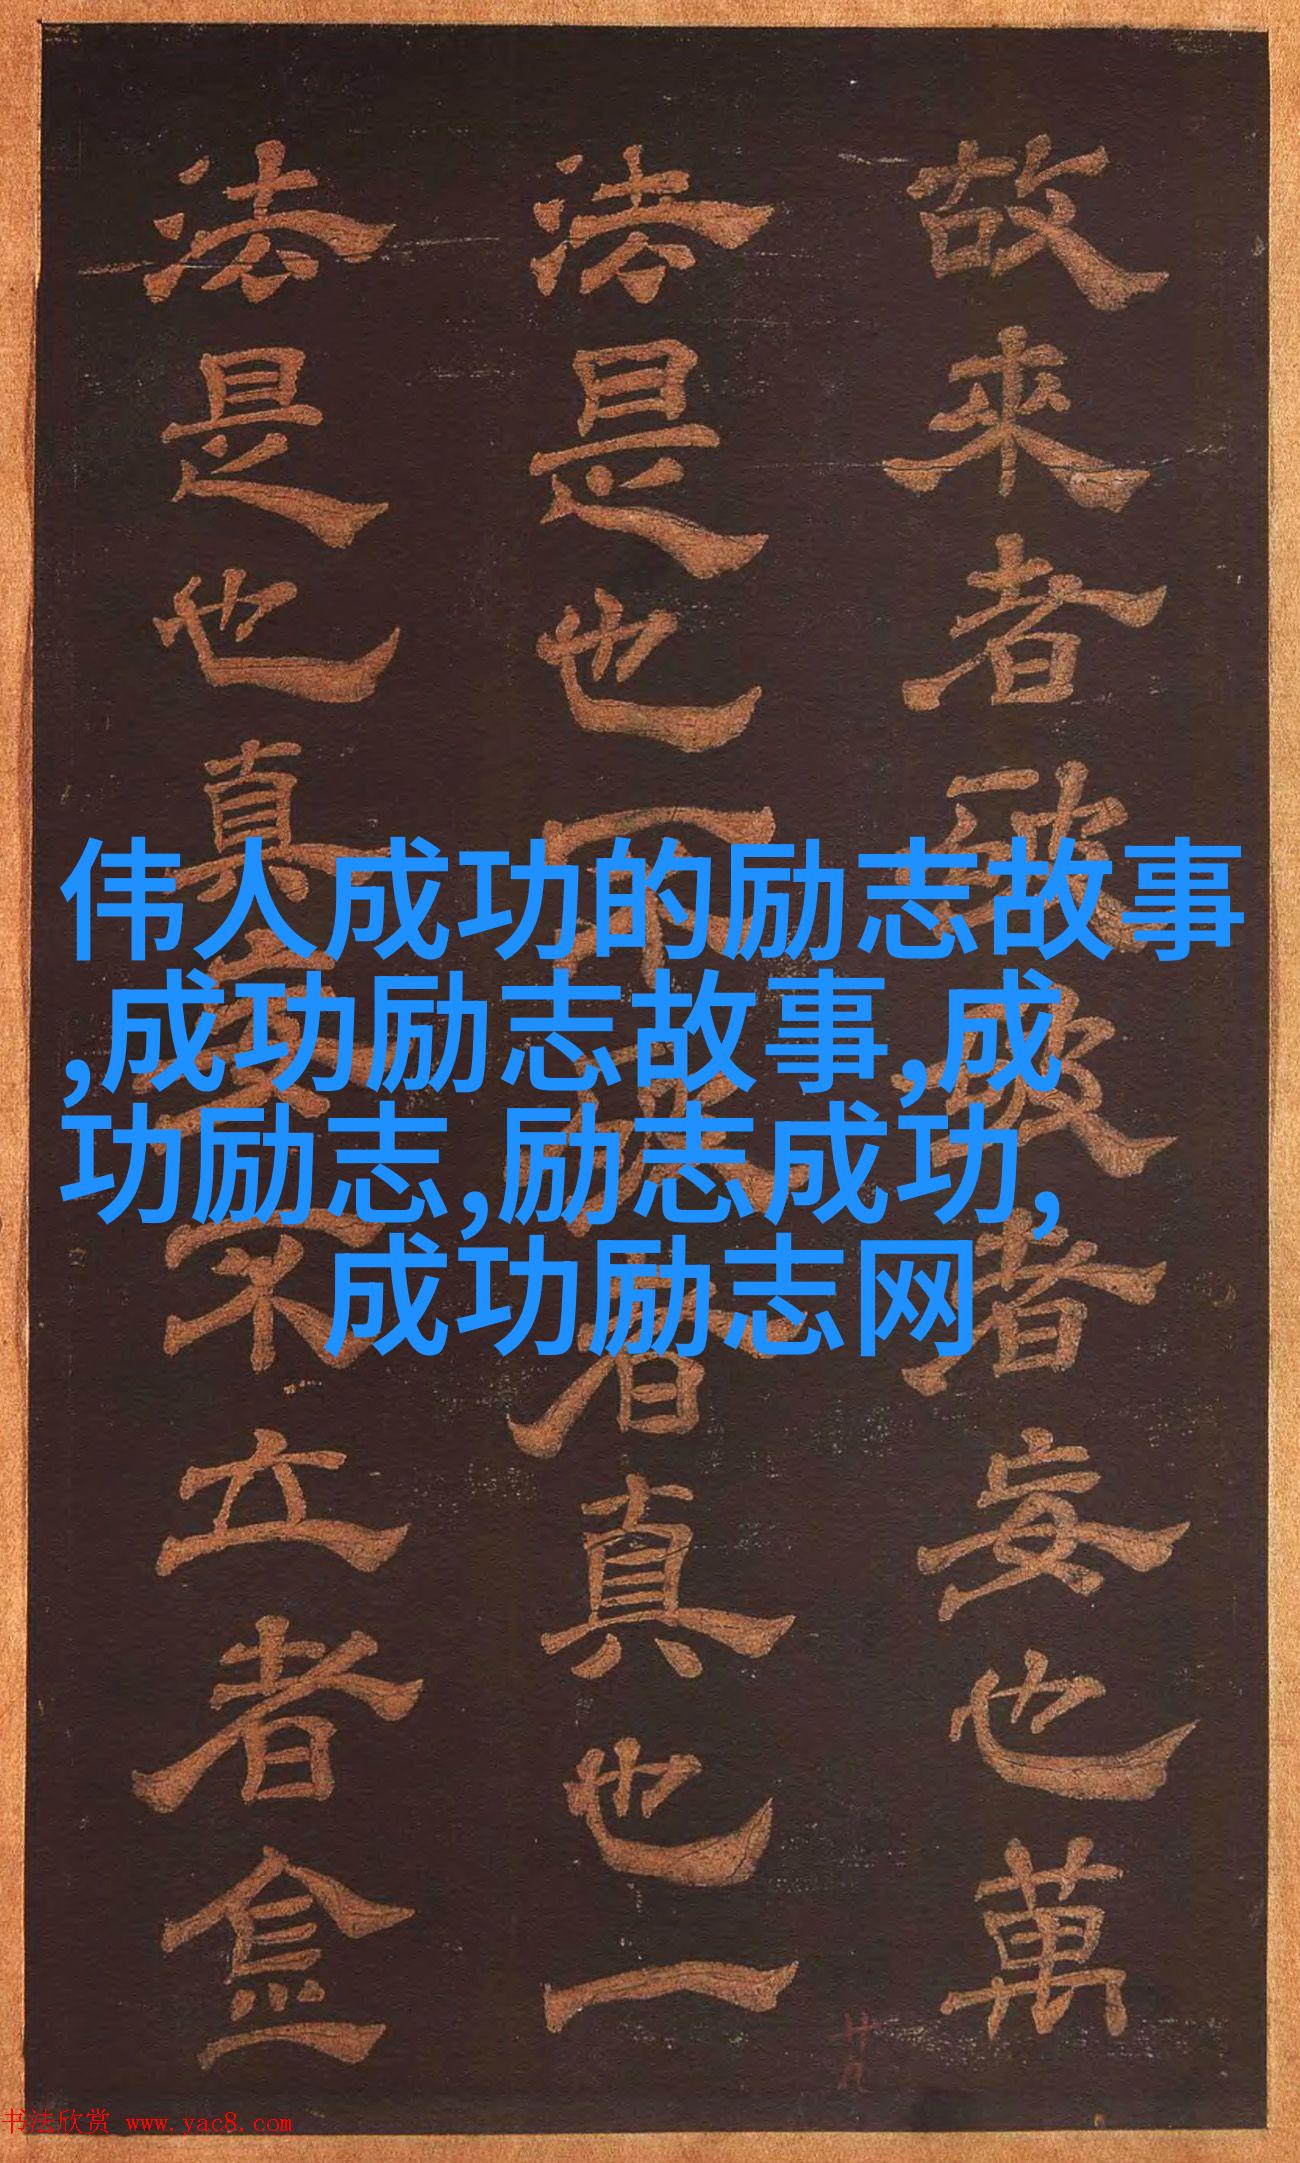 伟人成功的励志故事
,成功励志故事,成
功励志,励志成功,
成功励志网
故來者破破者妄也萬
法是也不破者真也一
法是也真妄不立者
书法欣赏 www.yac8.com